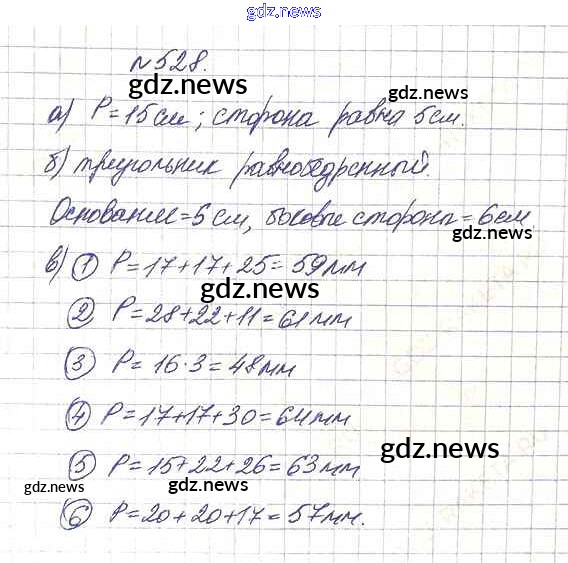 gdz.news
№528.
gdz.news
а) P=15см; сторона равна 5см.
gdz.news
б) треугольник равнобедренный.
Основание=5см, боковые стороны=6см
gdz.news
в) ① P=17+17+25=59мм
gdz.news
② P=28+22+11=61мм
③ P=16·3=48мм
④ P=17+17+30=64мм
gdz.news
⑤ P=15+22+26=63мм
gdz.news gdz.news gdz.news
⑥ P=20+20+17=57мм.